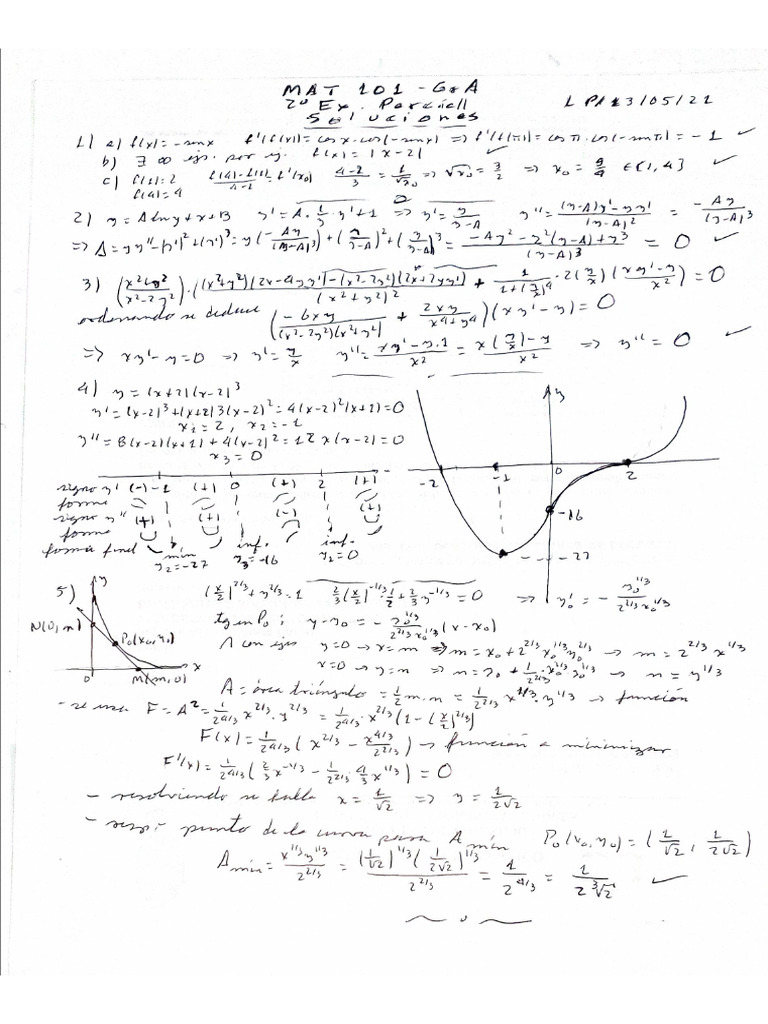 MAT 101 - GrA
2º Ex. Parcial
LP 13/05/21
Soluciones
1) a) f(x)=-senx f'(f(x))=cosx·cos(-senx) => f'(f(π))=cosπ·cos(-senπ)=-1 ✓
b) ∃ ∞ ej. por ej. f(x)=|x-2| ✓
c) f(1)=2 f(4)=4 (f(4)-f(1))/(4-1)=f'(x₀) (4-2)/3=1/√x₀ => √x₀=3/2 => x₀=9/4 ∈(1,4) ✓
2) y=Alny+x+B y'=A·(1/y)·y'+1 => y'=y/(y-A) y''=((y-A)y'-yy')/(y-A)²=-Ay/(y-A)³
=> Δ=yy''-(y')²+(y')³=y(-Ay/(y-A)³)+(y/(y-A))²+(y/(y-A))³=(-Ay²-y²(y-A)+y³)/(y-A)³=0 ✓
3) ((x²+y²)/(x²-2y²))·((x²+y²)(2x-4yy')-(x²-2y²)(2x+2yy'))/(x²+y²)²+1/(1+(y/x)⁴)·2(y/x)((xy'-y)/x²)=0
ordenando se deduce (-6xy/((x²-2y²)(x²+y²))+2xy/(x⁴+y⁴))(xy'-y)=0
=> xy'-y=0 => y'=y/x y''=(xy'-y·1)/x²=(x(y/x)-y)/x² => y''=0 ✓
4) y=(x+2)(x-2)³
y'=(x-2)³+(x+2)3(x-2)²=4(x-2)²(x+2)=0
x₁=2, x₂=-1
y''=8(x-2)(x+1)+4(x-2)²=12x(x-2)=0
x₃=0
y
-2 -1 0 2
-16
-27
signo y' (-) -1 (+) 0 (+) 2 (+)
forma
signo y'' (+) (+) (-) (+)
forma
forma final mín inf. inf.
y₂=-27 y₃=-16 y₂=0
5) y
(x/2)^2/3+y^2/3=1 (2/3)(x/2)^-1/3·1/2+(2/3)y^-1/3=0 => y₀'=-y₀^1/3/(2^2/3x₀^1/3)
N(0,n) P₀(x₀,y₀)
tg en P₀: y-y₀=-y₀^1/3/(2^2/3x₀^1/3)(x-x₀)
∩ con ejes y=0 -> x=m => m=x₀+2^2/3x₀^1/3y₀^2/3 -> m=2^2/3x^1/3
0 M(m,0) x
x=0 -> y=n => n=y₀+(1/2^2/3)x₀^2/3·y₀^1/3 -> n=y^1/3
A=área triángulo=(1/2)m·n=(1/2^2/3)x^1/3·y^1/3 -> función
- se usa F=A²=(1/2^4/3)x^2/3·y^2/3=(1/2^4/3)·x^2/3(1-(x/2)^2/3)
F(x)=(1/2^4/3)(x^2/3-x^4/3/2^2/3) -> función a minimizar
F'(x)=(1/2^4/3)((2/3)x^-1/3-(1/2^2/3)(4/3)x^1/3)=0
- resolviendo se halla x=1/√2 => y=1/(2√2)
- resp: punto de la curva para A mín P₀(x₀,y₀)=(1/√2, 1/(2√2))
A mín=x^1/3y^1/3/2^2/3=(1/√2)^1/3(1/(2√2))^1/3/2^2/3=1/2^4/3=1/(2∛2) ✓